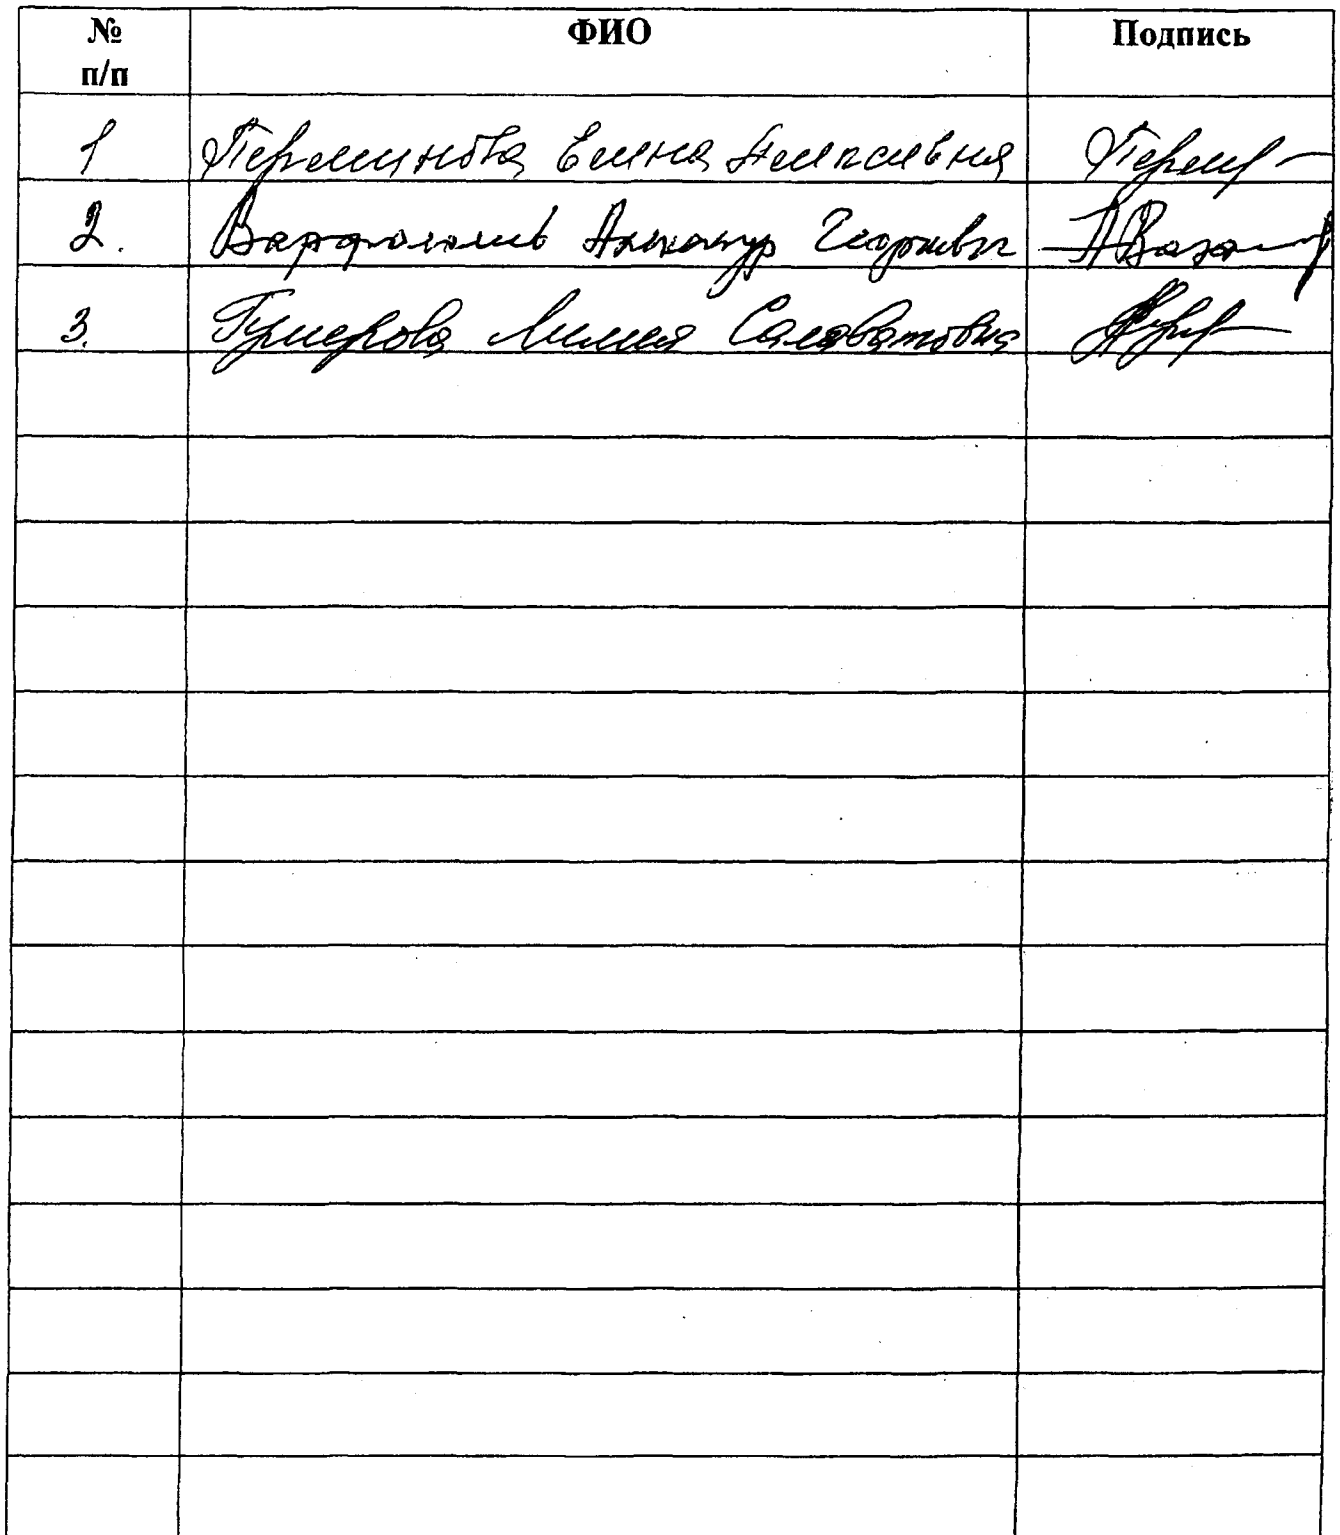 № п/п ФИО Подпись
1 Перминова Елена
2. Варфоломеев Александр Георгиевич
3. Гумерова Лилия Салаватовна